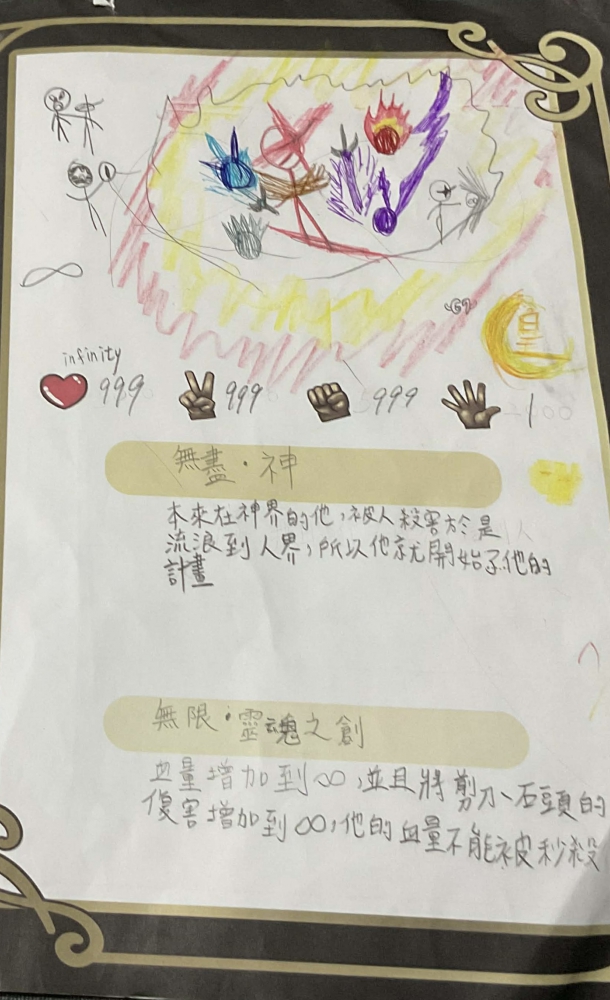 ∞
皇
infinity
999 999 999 1
無盡·神
本來在神界的他,被人殺害於是
流浪到人界,所以他就開始了他的
計畫
無限·靈魂之創
血量增加到∞,並且將剪刀、石頭的
傷害增加到∞,他的血量不能被秒殺